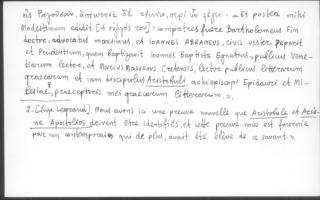 ἀπαντῶντα δὲ
περὶ ὧν λέγει: "Et postea mihi
Modestinum edidit [ὁ compatres fuere Bartholomeus Fin
doctor, advocatus maximus, et IOANNES ABRAMEUS, civis vester. Peperit
et Prudentium, quem baptizavit Ioannes Baptista Egnatius, publicus Vene-
tiarum lector, et Marcus Musurus Cretensis, lector publicus litterarum
graecarum et iam discipulus Aristobuli, archiepiscopi Epidauri et
praeceptoris mei graecarum litterarum.».
2. [Chez Legrand]: Nous avons ici une preuve nouvelle que Aristobule et Arsè-
ne Apostolios doivent être identifiés, et cette preuve nous est fournie
par un contemporain qui de plus, avait été élève de ce savant."